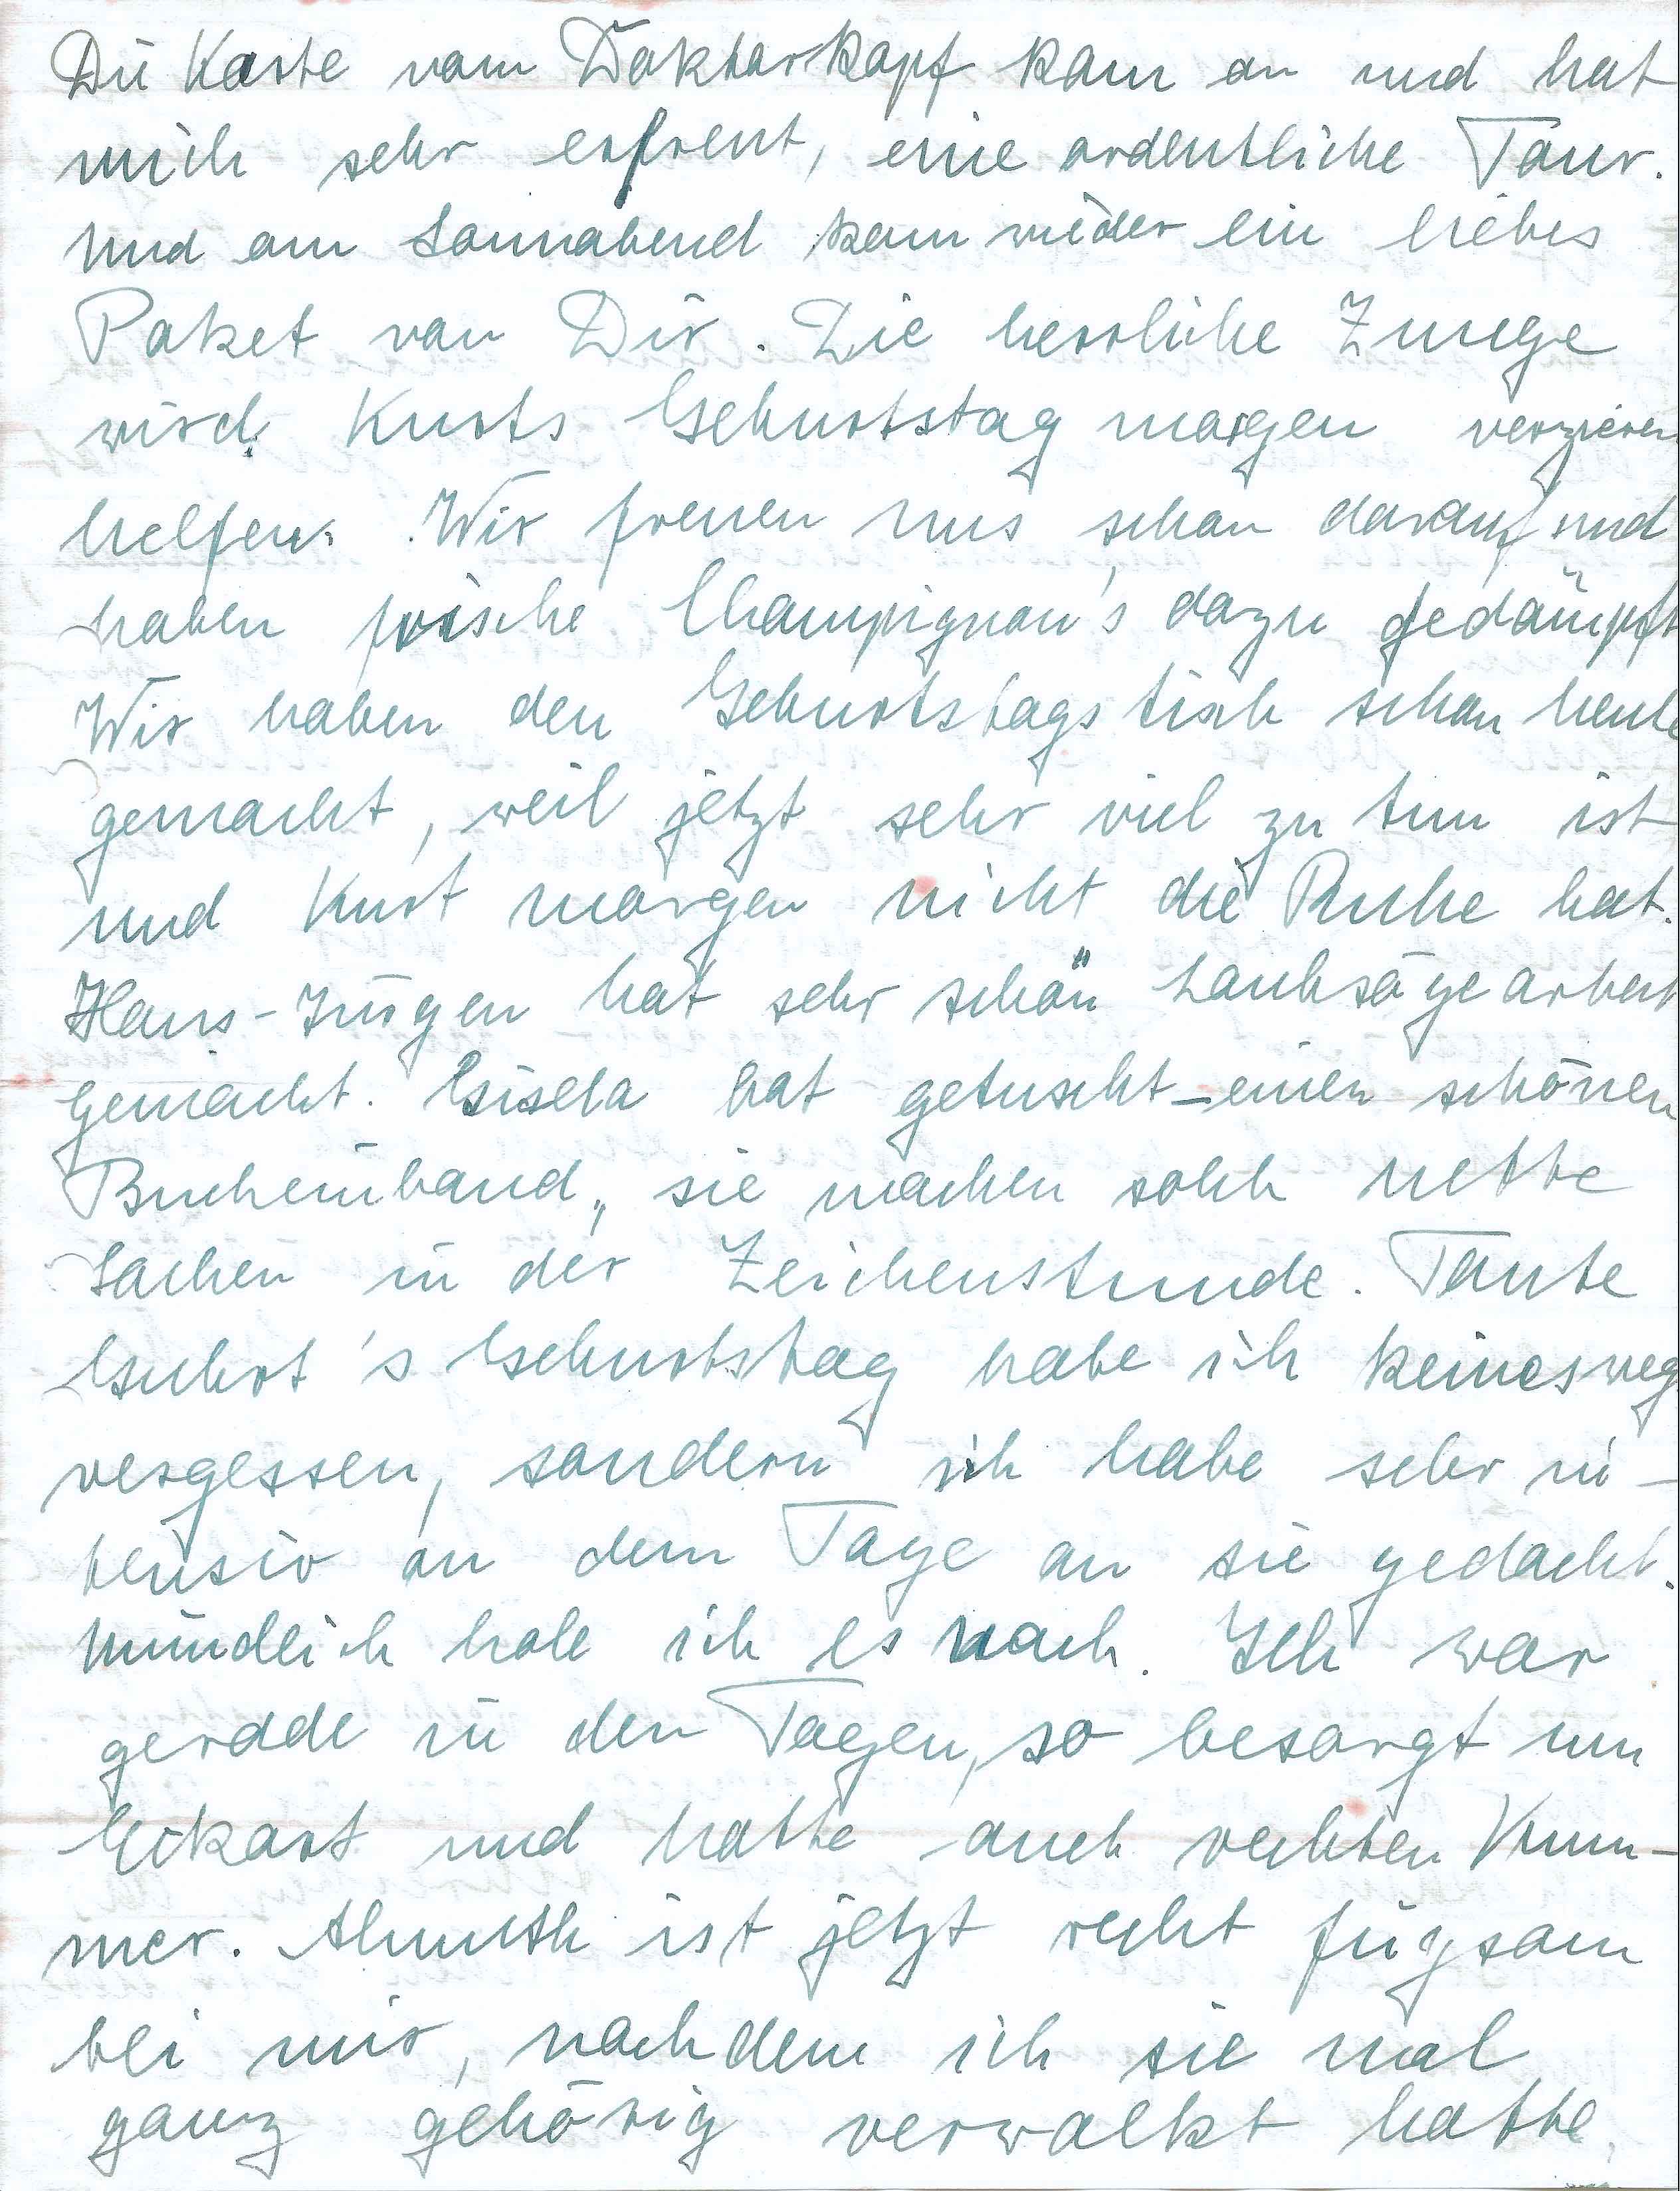 Die Karte vom Doktorkopf kam an und hat
mich sehr erfreut, eine ordentliche Tour.
Und am Sonnabend kam wieder ein liebes
Paket von Dir. Die herrliche Zunge
wird Kurts Geburtstag morgen verzieren
helfen. Wir freuen uns schon darauf und
haben frische Champignon's dazu gedämpft
Wir haben den Geburtstagstisch schon heute
gemacht, weil jetzt sehr viel zu tun ist
und Kurt morgen nicht die Ruhe hat.
Hans-Jürgen hat sehr schön Laubsägearbeit
gemacht. Gisela hat getuscht – einen schönen
Bucheinband, sie machen solch nette
Sachen in der Zeichenstunde. Tante
Guhrt's Geburtstag habe ich keinesweg
vergessen, sondern ich habe sehr in-
tensiv an dem Tage an sie gedacht.
Mündlich hole ich es nach. Ich war
gerade in den Tagen, so besorgt um
Eckart und hatte auch rechten Kum-
mer. Almuth ist jetzt recht fügsam
bei mir, nachdem ich sie mal
ganz gehörig verwalkt hatte.